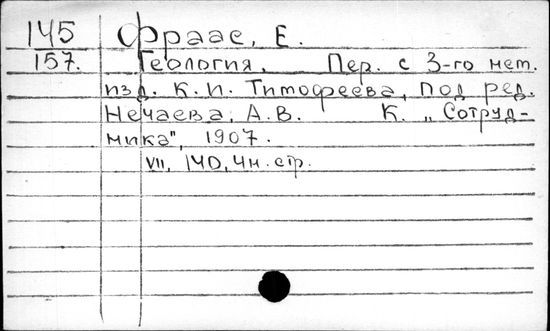 145 Фраас, Е.
157. Геология. Пер. с 3-го нем.
изд. К.И. Тимофеева, под ред.
Нечаева, А.В. К. „Сотруд-
ника", 1907.
VII, 140, 4н. стр.